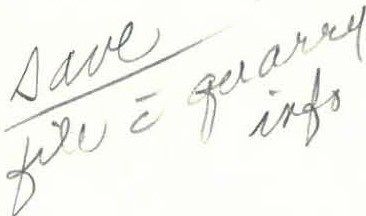 Save
file c̄ quarry
info